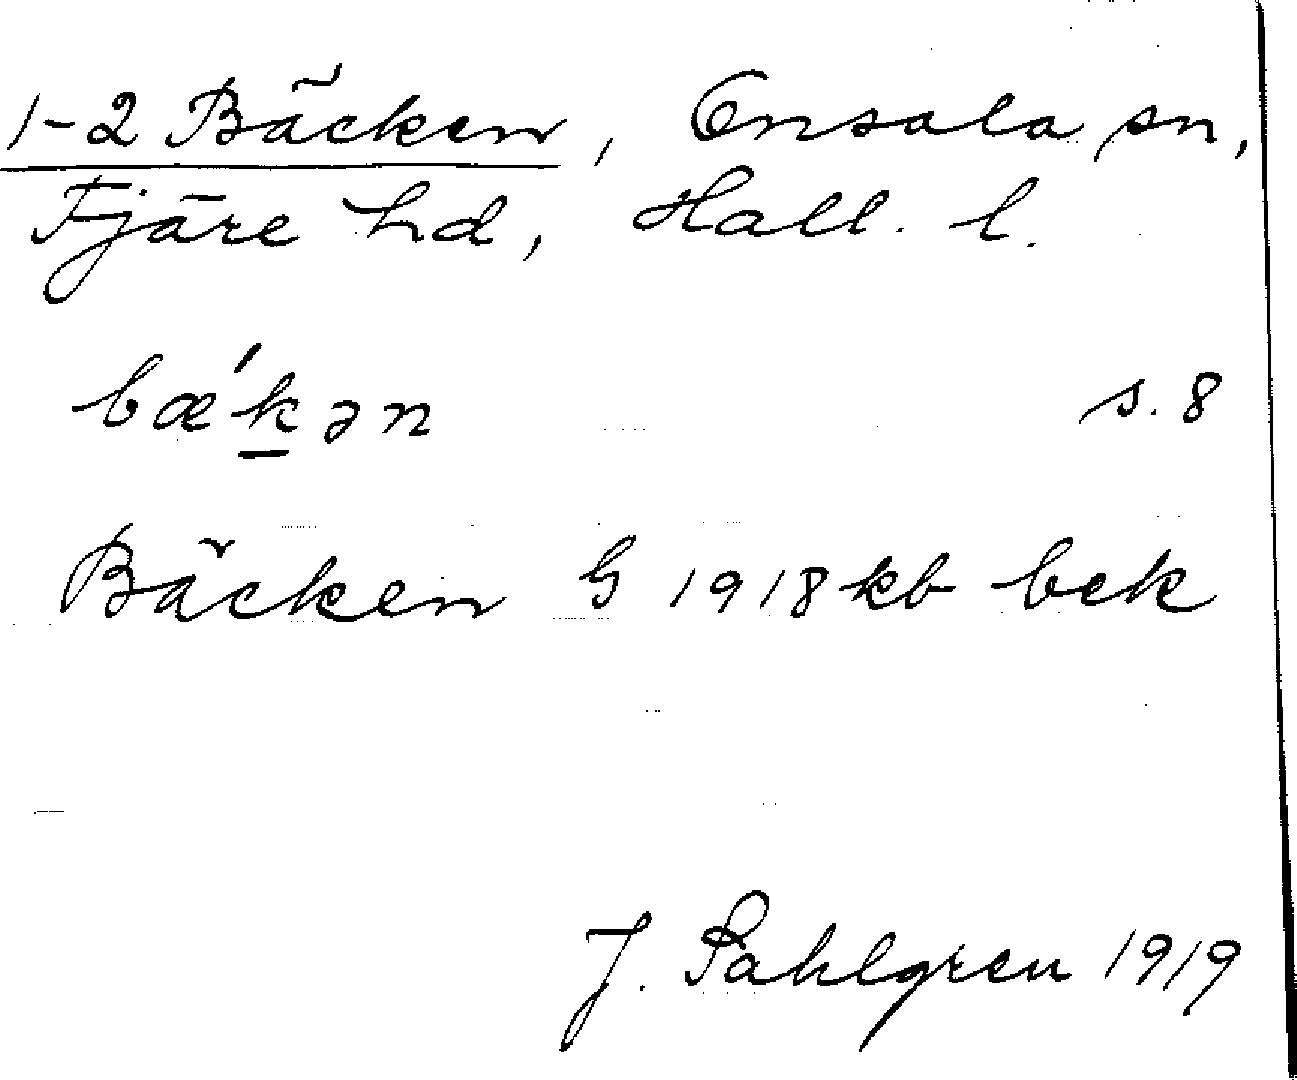 1-2 Bäcken, Onsala sn,
Fjäre hd, Hall. l.
bæ´kən s. 8
Bäcken G 1918 kb bek
J. Sahlgren 1919